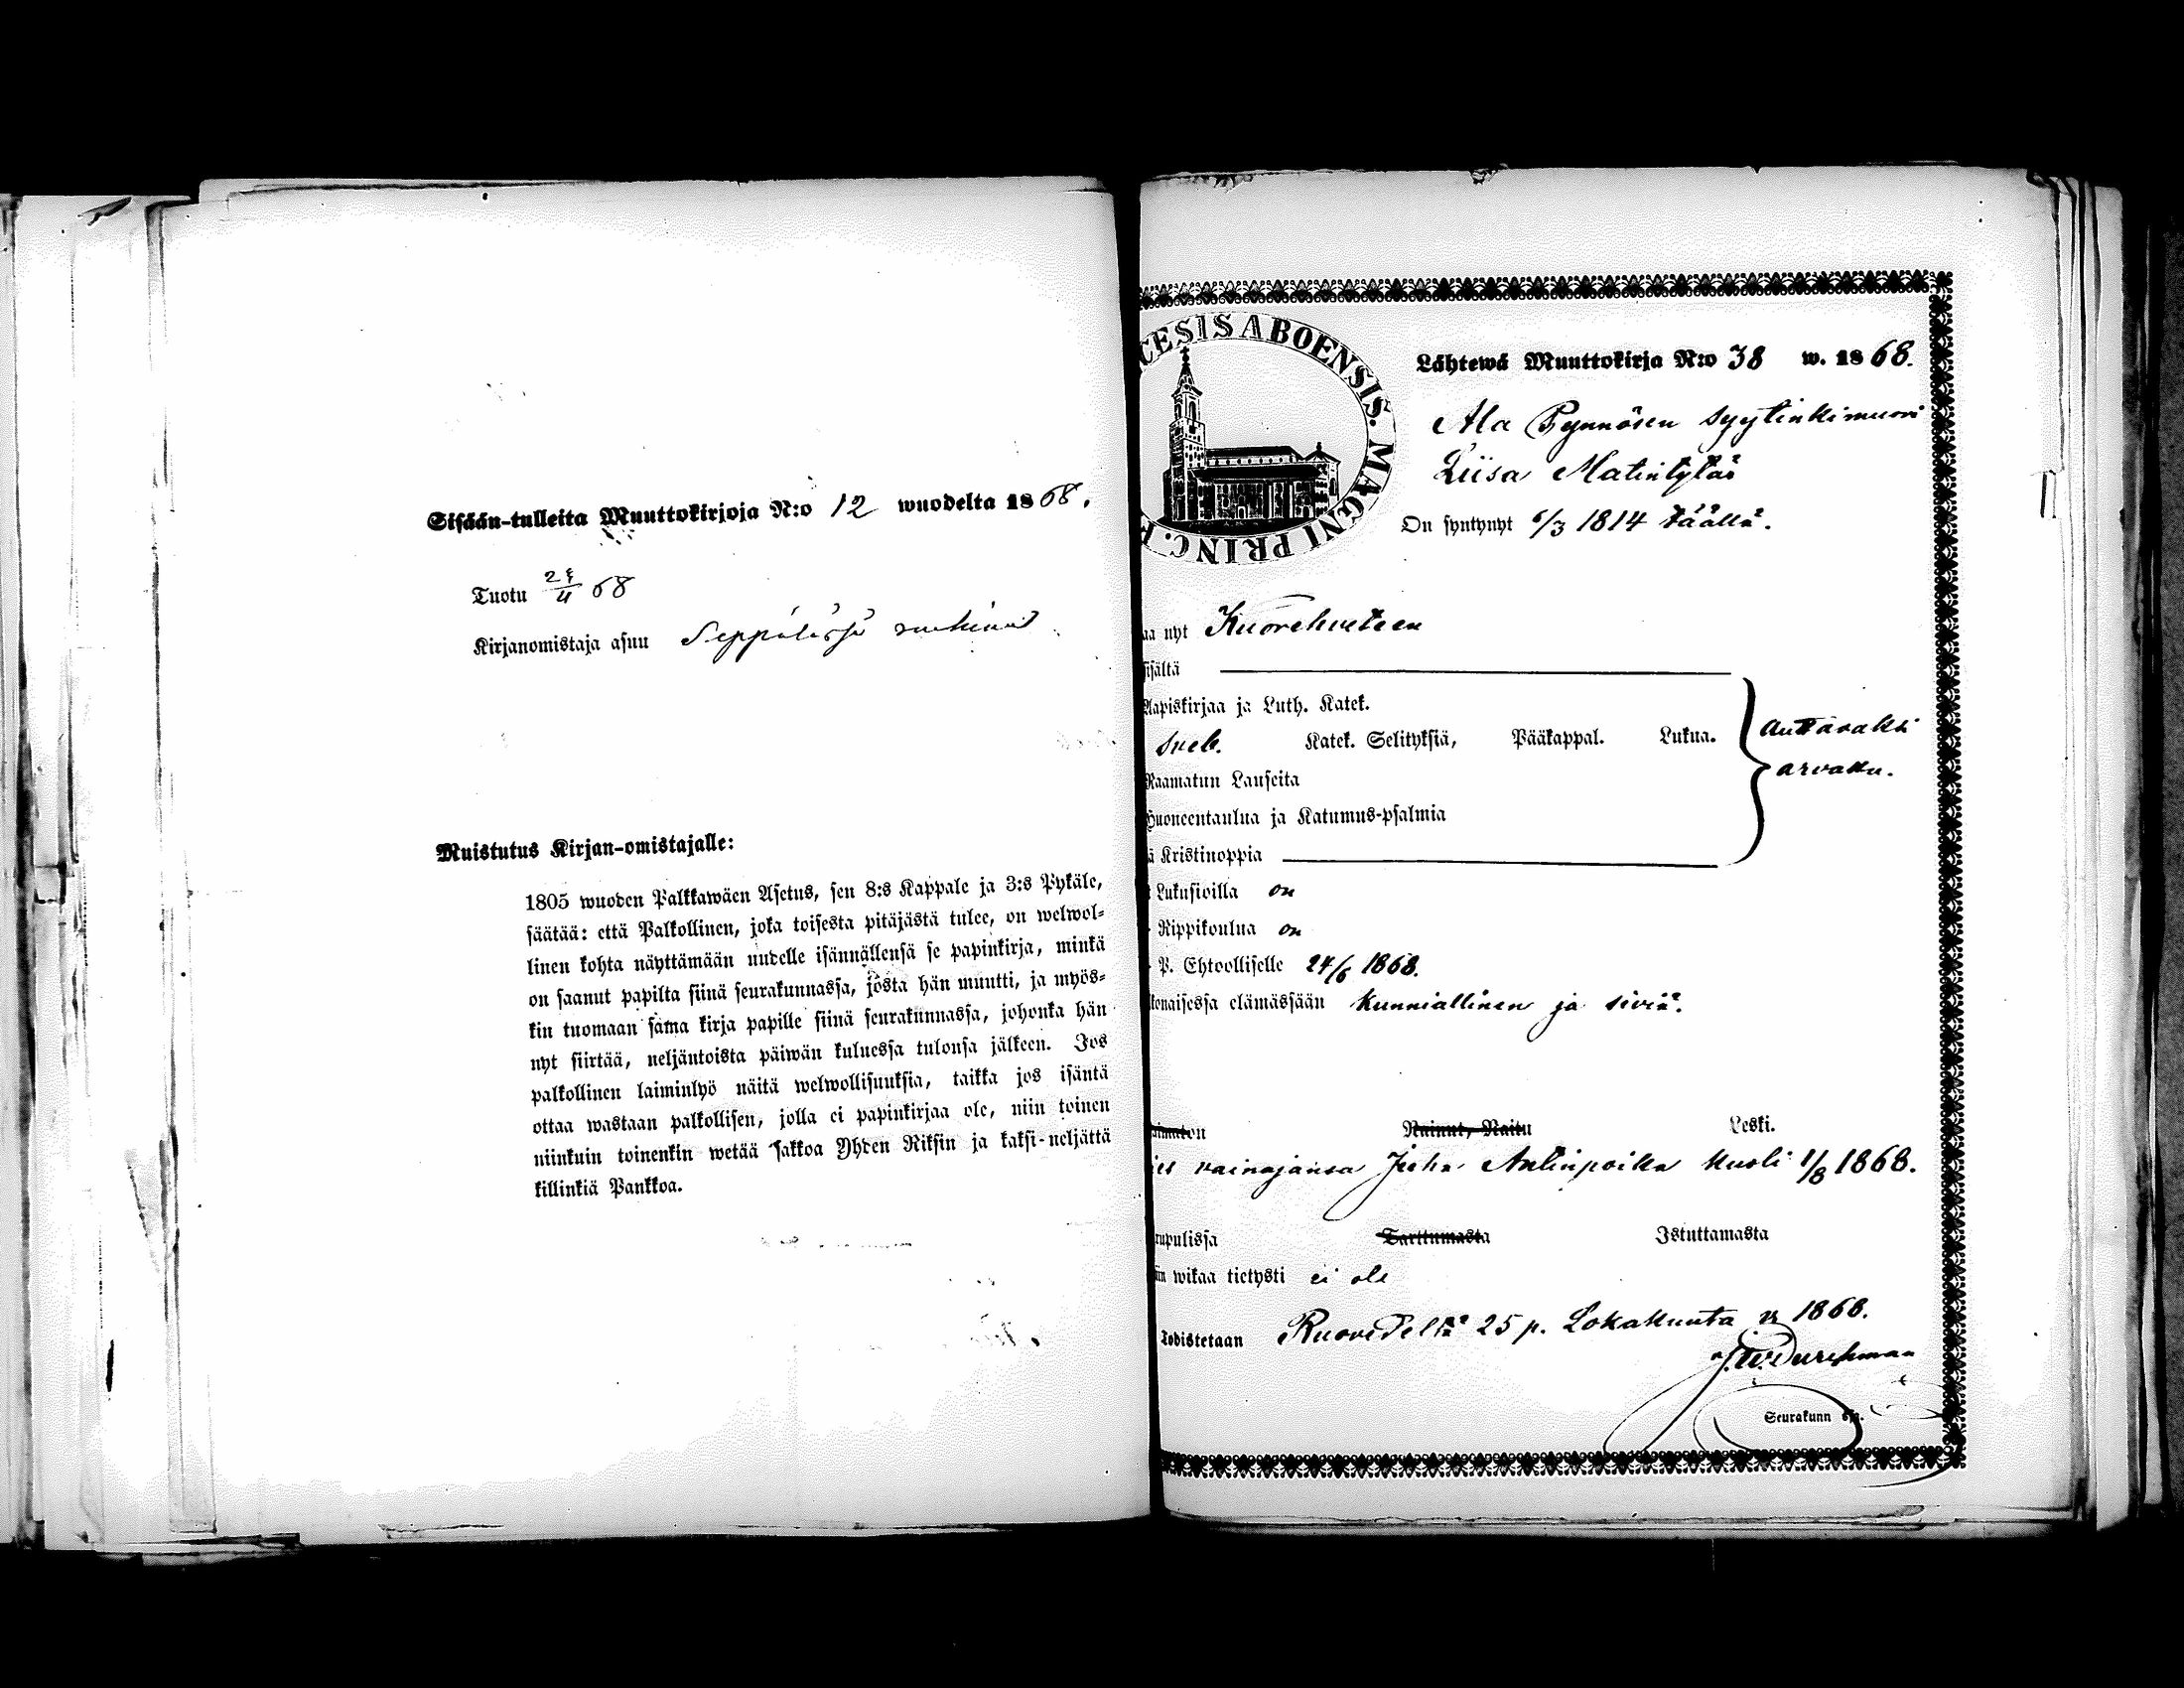 Sisään-tulleita Muuttokirjoja N:o 12 wuodelta 1868.
Tuotu 68
Kirjanomistaja asuu Seppälässä
Muistutus Kirjan-omistajalle:
1805 wuoden Palkkawäen Asetus, sen 8:s Kappale ja 3:s Pykäle,
säätää: että Palkollinen, joka toisesta pitäjästä tulee, on welwol-
linen kohta näyttämään uudelle isännällensä se papinkirja, minkä
on saanut papilta siinä seurakunnassa, josta hän muutti, ja myös-
kin tuomaan sama kirja papille siinä seurakunnassa, johonka hän
nyt siirtää, neljäntoista päiwän kuluessa tulonsa jälkeen. Jos
palkollinen laiminlyö näitä welwollisuuksia, taikka jos isäntä
ottaa wastaan palkollisen, jolla ei papinkirjaa ole, niin toinen
niinkuin toinenkin wetää sakkoa Yhden Riksin ja kaksi-neljättä
killinkiä Pankkoa.
CESIS ABOENSIS. MAGNI PRINC. F
Lähtewä Muuttokirja N:o 38 w. 1868.
Ala Pynnösen syytinkimuori
Liisa Matintytär
On syntynyt 6/3 1814 täällä.
aa nyt Kuorehveteen
sisältä
Aapiskirjaa ja Luth. Katek.
Sveb. Katek. Selityksiä, Pääkappal. Lukua.
auttavaksi
arvattu.
Raamatun Lauseita
Huoneentaulua ja Katumus-psalmia
ä Kristinoppia
Lukusioilla on
Rippikoulua on
P. Ehtoolliselle 24/6 1868.
konaisessa elämässään kunniallinen ja siviä.
Nainut, Naitu Leski.
vainajansa Juha Antinpoika kuoli 1/8 1868.
rupulissa Tarttumasta Istuttamasta
in wikaa tietysti ei ole
Todistetaan Ruovedeltä 25 p. Lokakuuta 1868.
Durchman
Seurakunn